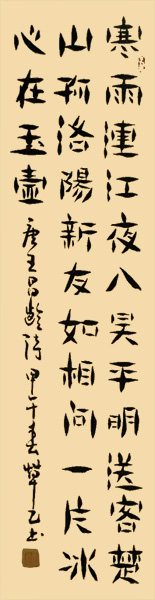 寒雨連江夜入吴平明送客楚
山孤洛陽新友如相問一片冰
心在玉壺 唐王昌齡詩 甲午春